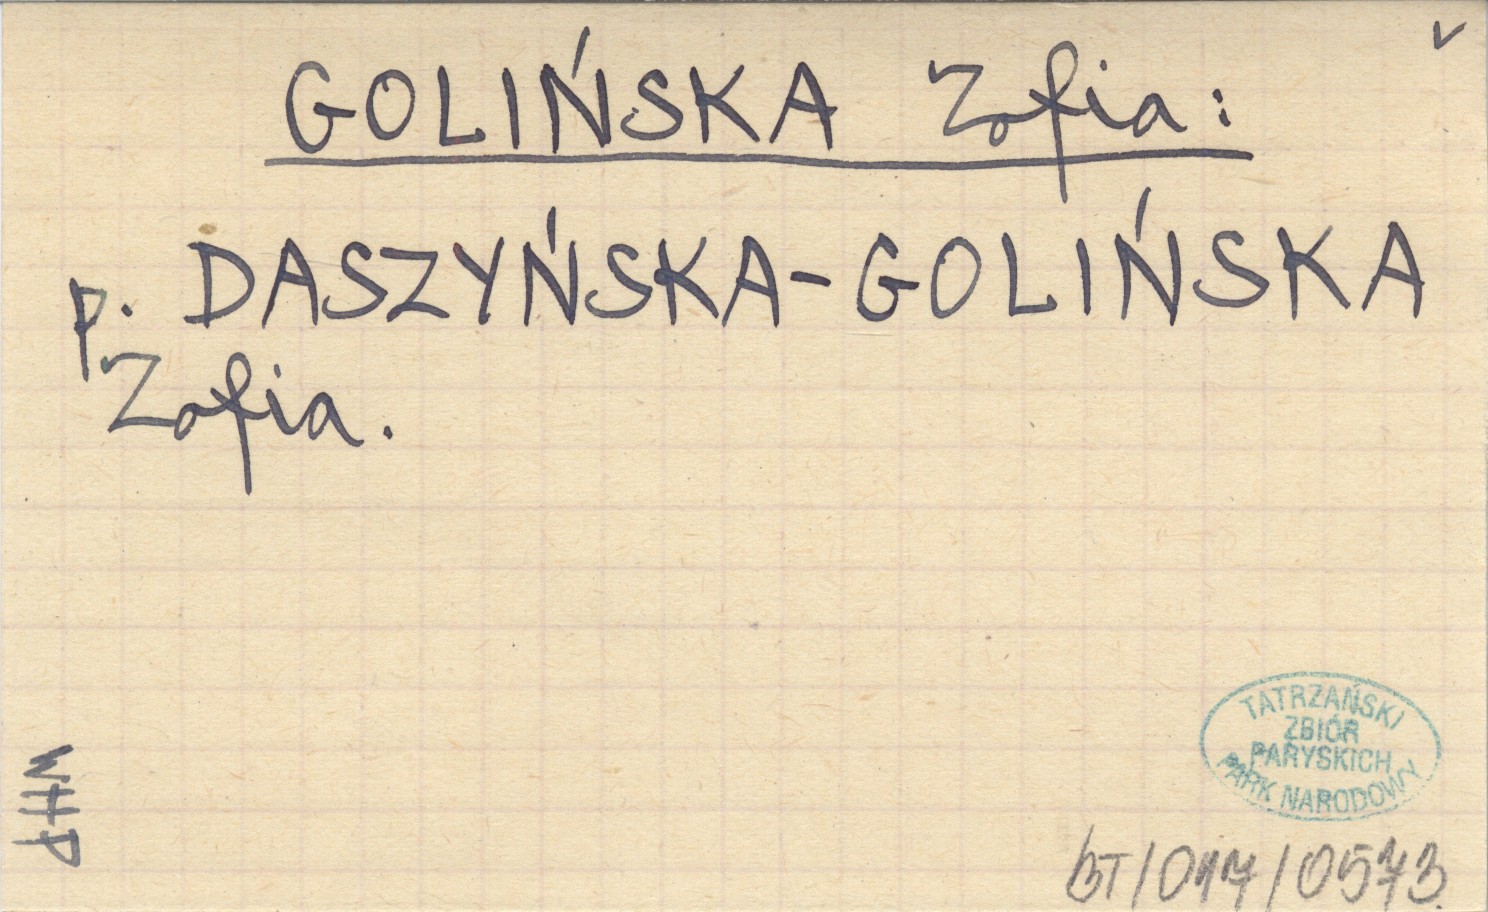 GOLIŃSKA Zofia:
p. DASZYŃSKA-GOLIŃSKA
Zofia.
WHP
TATRZAŃSKI
ZBIÓR
PARYSKICH
PARK NARODOWY
BT/017/0573